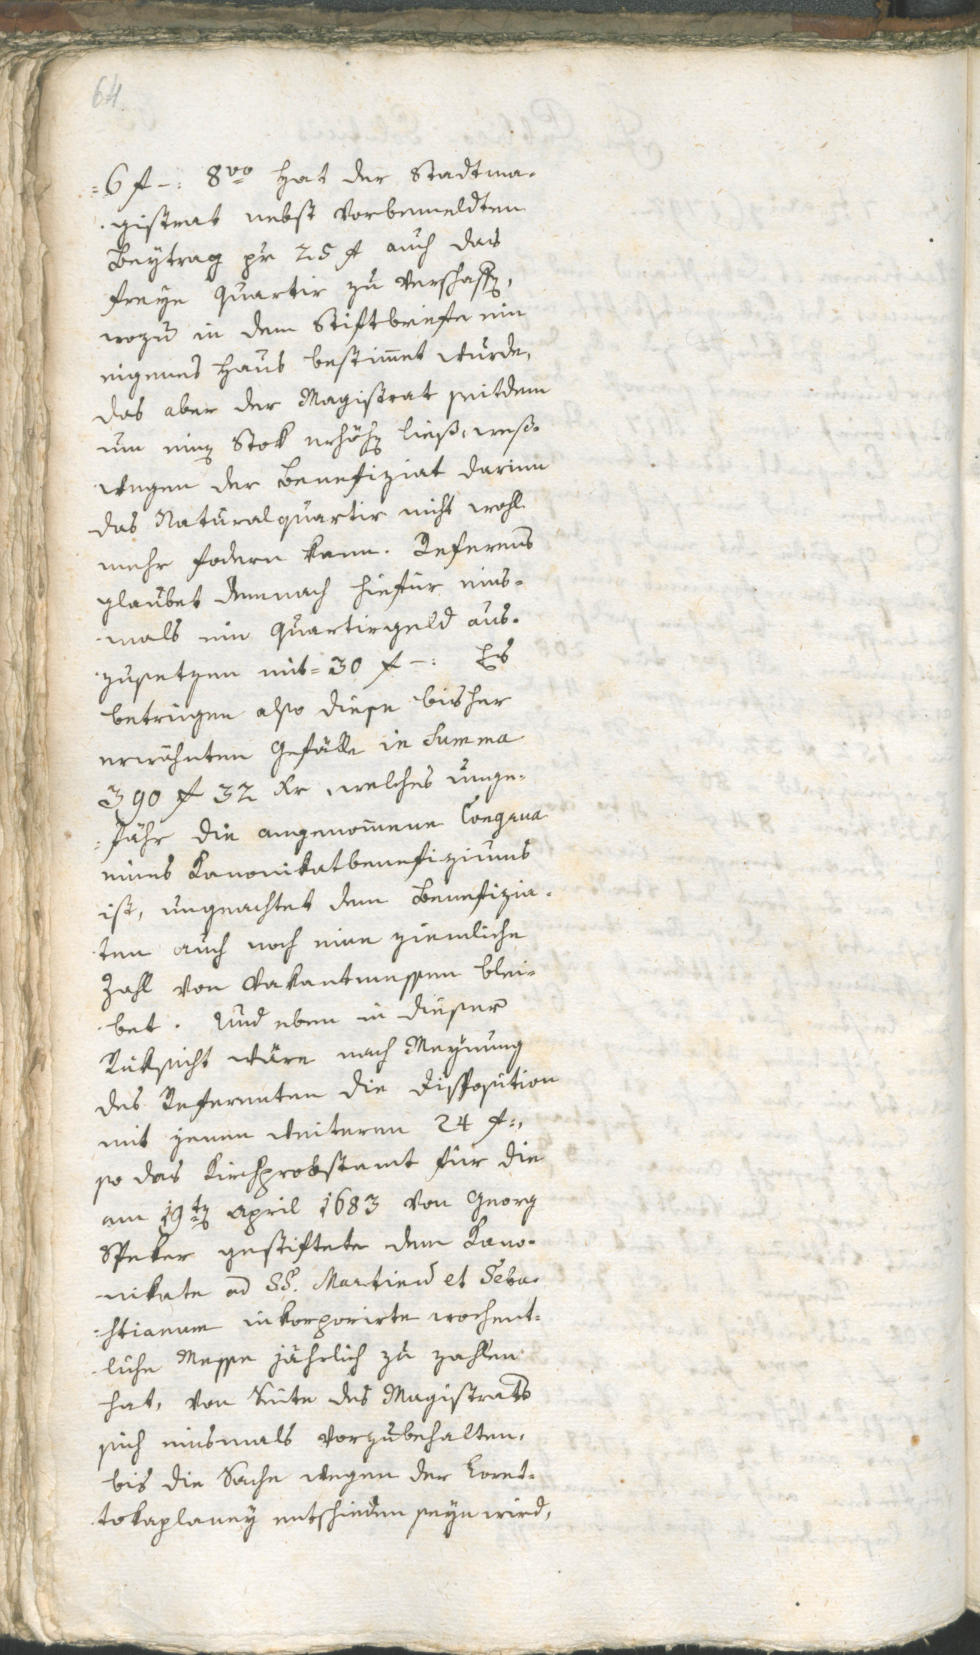 64
=6 f –: 8vo hat der Stadtma-
gistrat nebst vorbemeldten
Beÿtrag pr 25 f auch das
freÿe Quartir zu verschaffen,
wozu in dem Stiftbriefe ein
eigenes Haus bestimmet wurde,
das aber der Magistrat seitdem
um einen Stok erhöhen ließ, weß-
wegen der Benefiziat darinn
das Naturalquartir nicht wohl
mehr fodern kann. Referens
glaubet demnach hiefür eins-
mals ein Quartirgeld aus-
zusetzen mit = 30 f –: Es
betrügen also diese bisher
erwähnten Gefälle in Summa
390 f 32 kr welches unge-
fähr die angenommene Congrua
eines Kanonikatbenefiziums
ist, ungeachtet dem Benefizia-
ten auch noch eine ziemliche
Zahl von Vakantmessen blei-
bet. Und eben in dieser
Rüksicht wäre nach Meÿnung
des Referenten die Disposition
mit jenen weiteren 24 f:,
so das Kirchprobstamt für die
am 19ten April 1683 von Georg
Speker gestiftete dem Kano-
nikate ad SS. Martinum et Seba-
stianum inkorporirte wochent-
liche Messe jährlich zu zahlen
hat, von Seite des Magistrats
sich einsmals vorzubehalten,
bis die Sache wegen der Loret-
tokaplaneÿ entschieden seÿn wird,